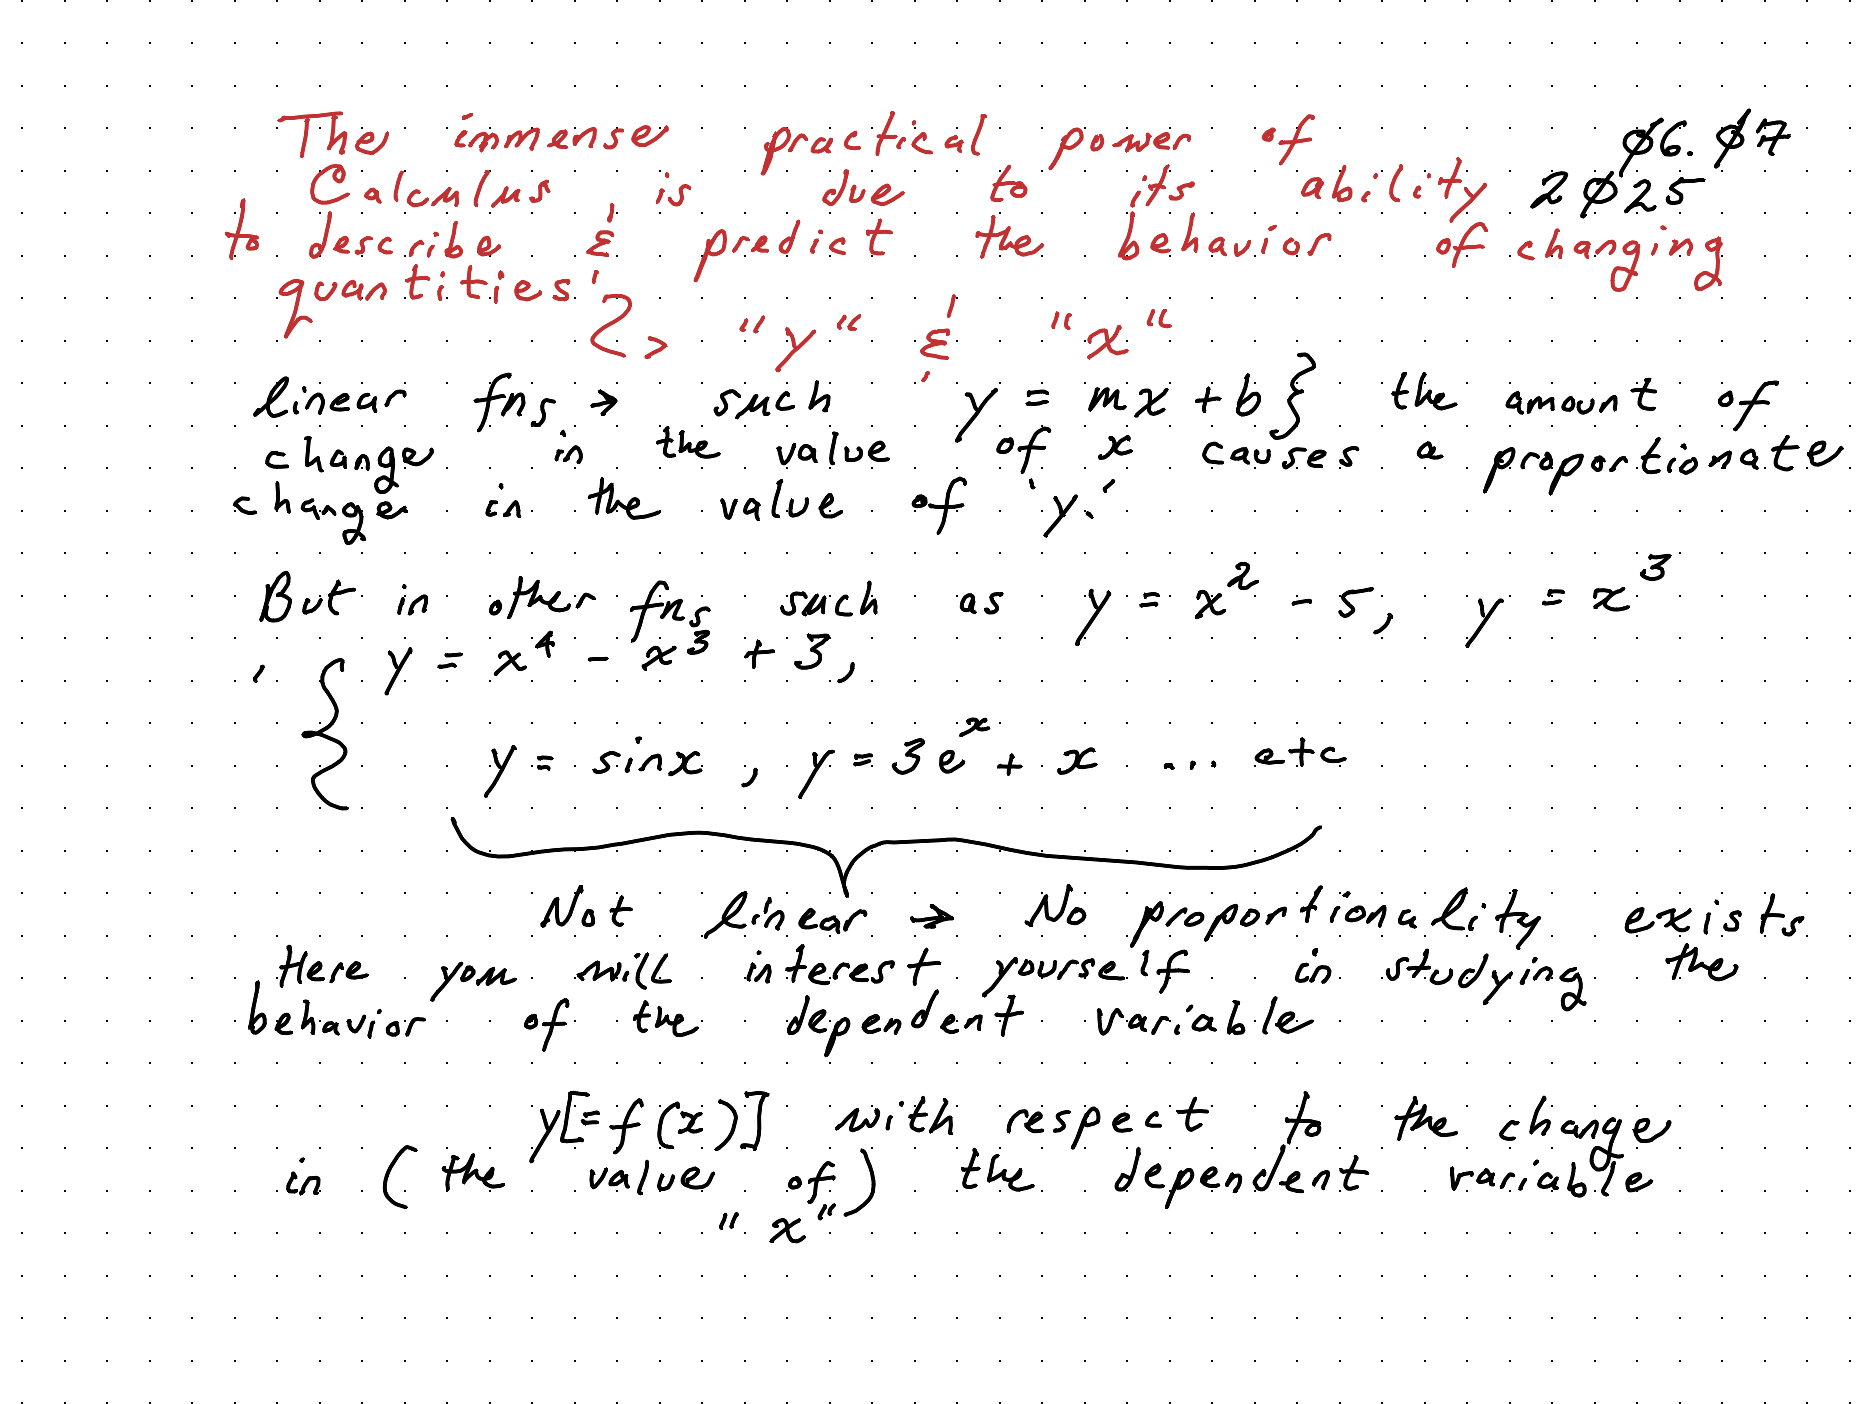 The immense practical power of ø6. ø7
Calculus is due to its ability 2ø25
to describe & predict the behavior of changing
quantities'
"y" & "x"
linear fns → such y = mx + b } the amount of
change in the value of x causes a proportionate
change in the value of 'y.'
But in other fns such as y = x² - 5, y = x³
, { y = x⁴ - x³ + 3,
y = sinx , y = 3e^x + x ... etc
Not linear → No proportionality exists
Here you will interest yourself in studying the
behavior of the dependent variable
y[=f(x)] with respect to the change
in (the value of) the dependent variable
"x"